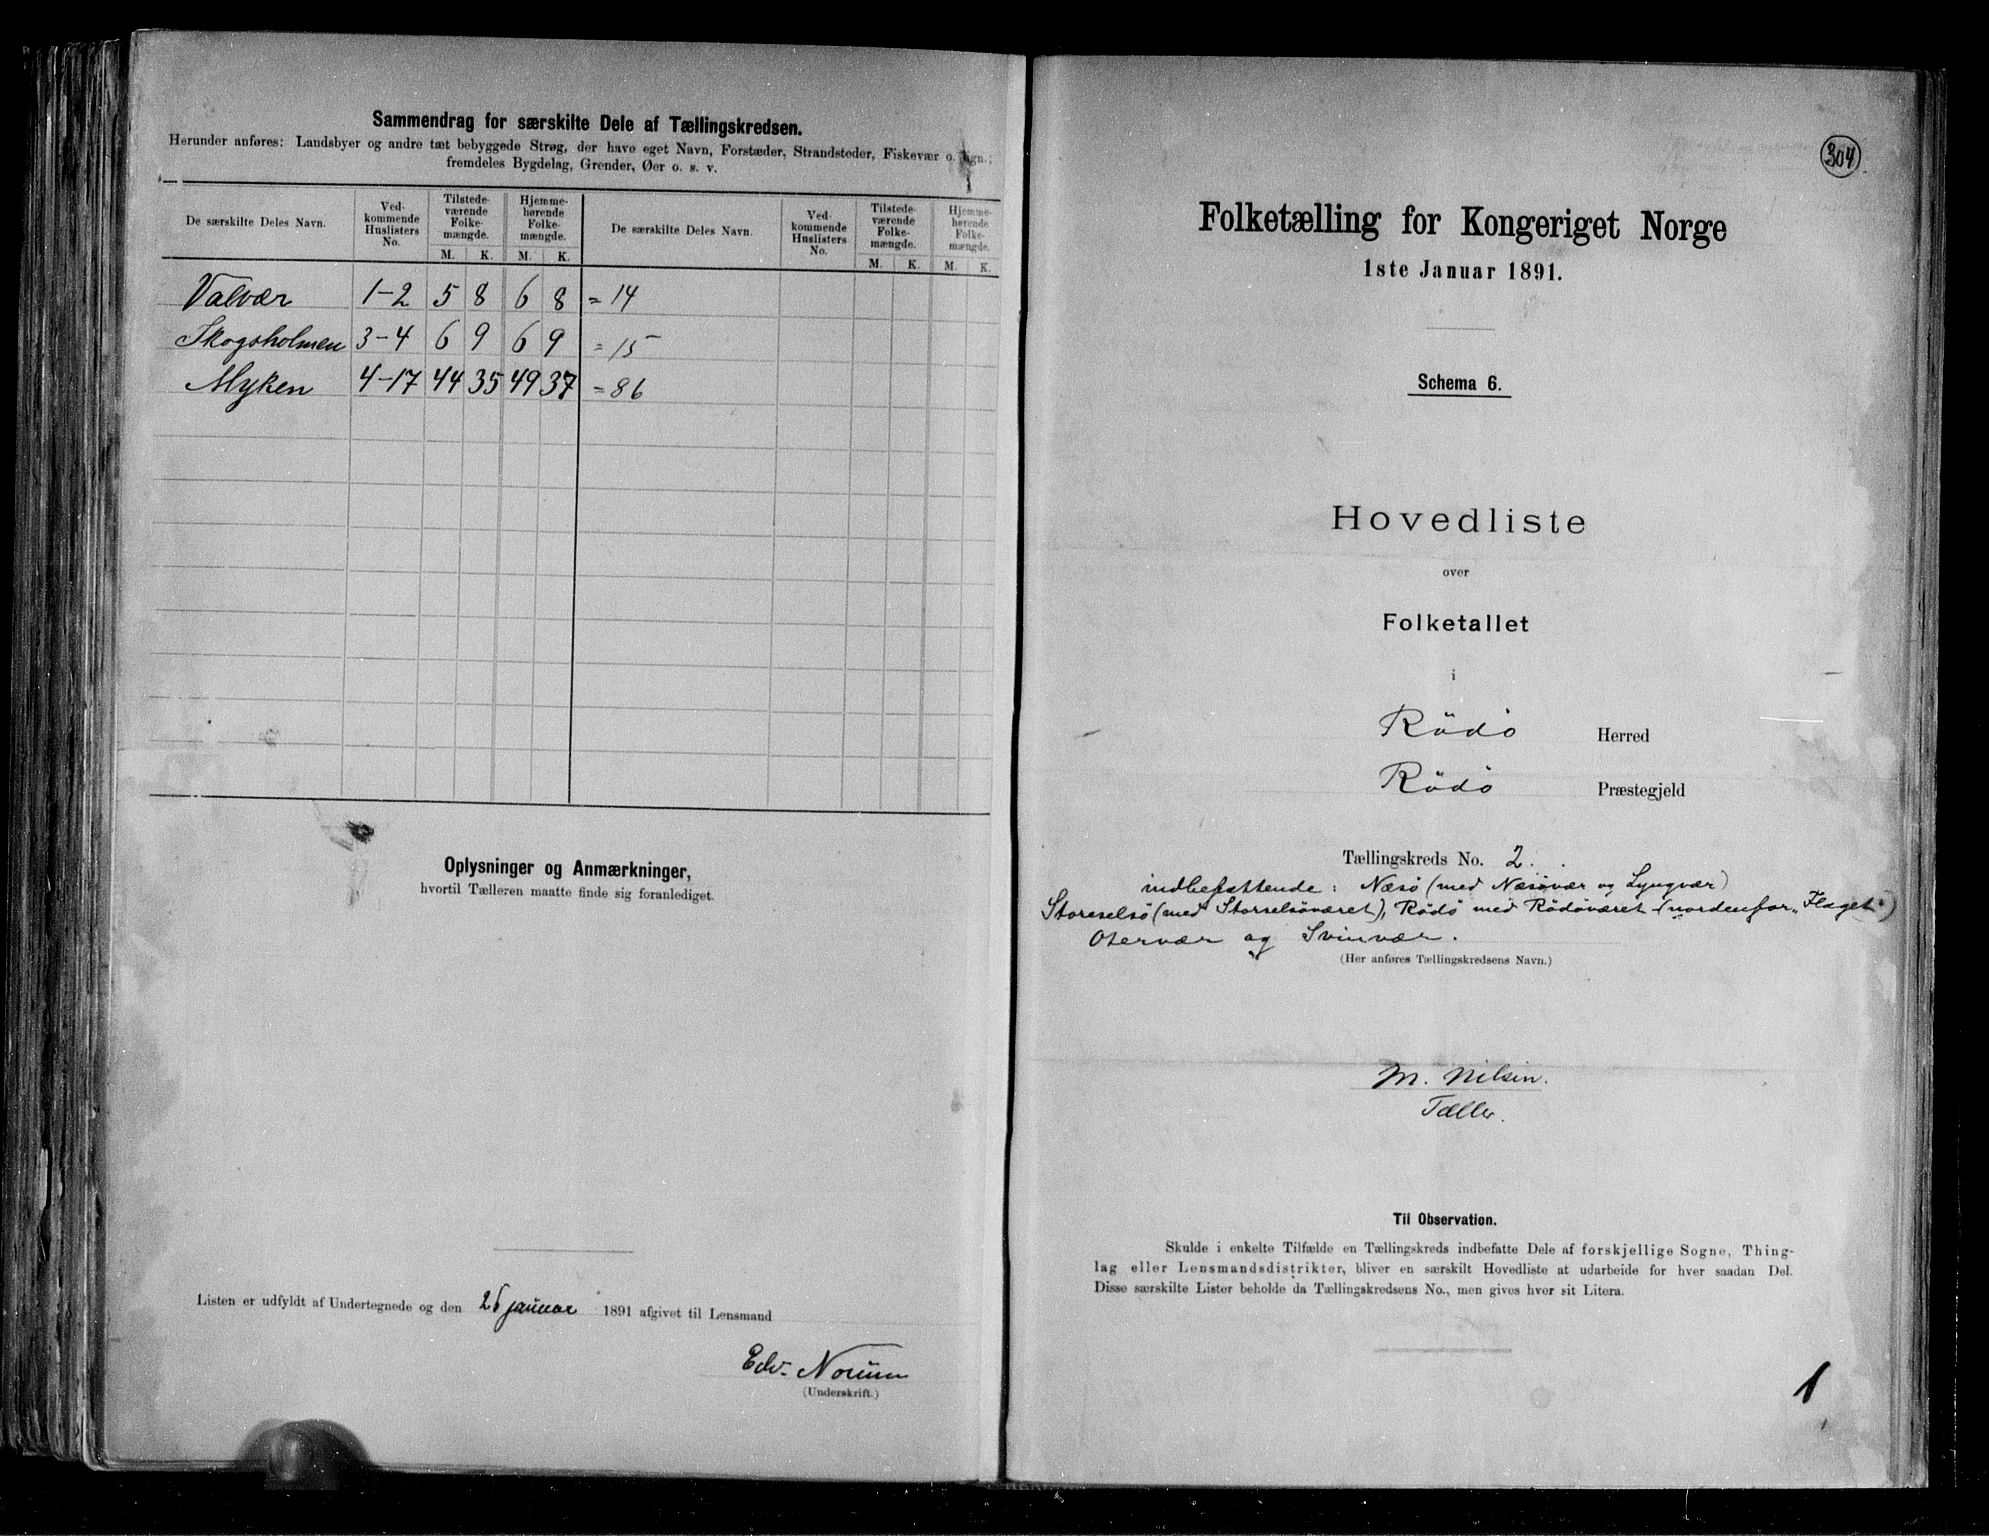 Sammendrag for særskilte Dele af Tællingskredsen.
Herunder anføres: Landsbyer og andre tæt bebyggede Strøg, der have eget Navn, Forstæder, Strandsteder, Fiskevær o. lign.;
fremdeles Bygdelag, Grender, Øer o. s. v.
De særskilte Deles Navn. Ved-kommende Huslisters No. Tilstede-værende Folke-mængde. Hjemme-hørende Folke-mængde. De særskilte Deles Navn. Ved-kommende Huslisters No. Tilstede-værende Folke-mængde. Hjemme-hørende Folke-mængde.
M. K. M. K. M. K. M. K.
Valvær 1-2 5 8 6 8 = 14
Skogsholmen 3-4 6 9 6 9 = 15
Myken 4-17 44 35 49 37 = 86
Oplysninger og Anmærkninger,
hvortil Tælleren maatte finde sig foranlediget.
Listen er udfyldt af Undertegnede og den 26 januar 1891 afgivet til Lensmand
Edv. Norum
(Underskrift.)
304
Folketælling for Kongeriget Norge
1ste Januar 1891.
Schema 6.
Hovedliste
over
Folketallet
i
Rödö Herred
Rödö Præstegjeld
Tællingskreds No. 2.
indbefattende: Næsö (med Næsövær og Lyngvær)
Storselsö (med Storselsöværet), Rödö med Rödöværet (nordenfor „Flaget")
Otervær og Svinvær.
(Her anføres Tællingskredsens Navn.)
M. Nilsen.
Tæller.
Til Observation.
Skulde i enkelte Tilfælde en Tællingskreds indbefatte Dele af forskjellige Sogne, Thing-
lag eller Lensmandsdistrikter, bliver en særskilt Hovedliste at udarbeide for hver saadan Del.
Disse særskilte Lister beholde da Tællingskredsens No., men gives hver sit Litera.
1